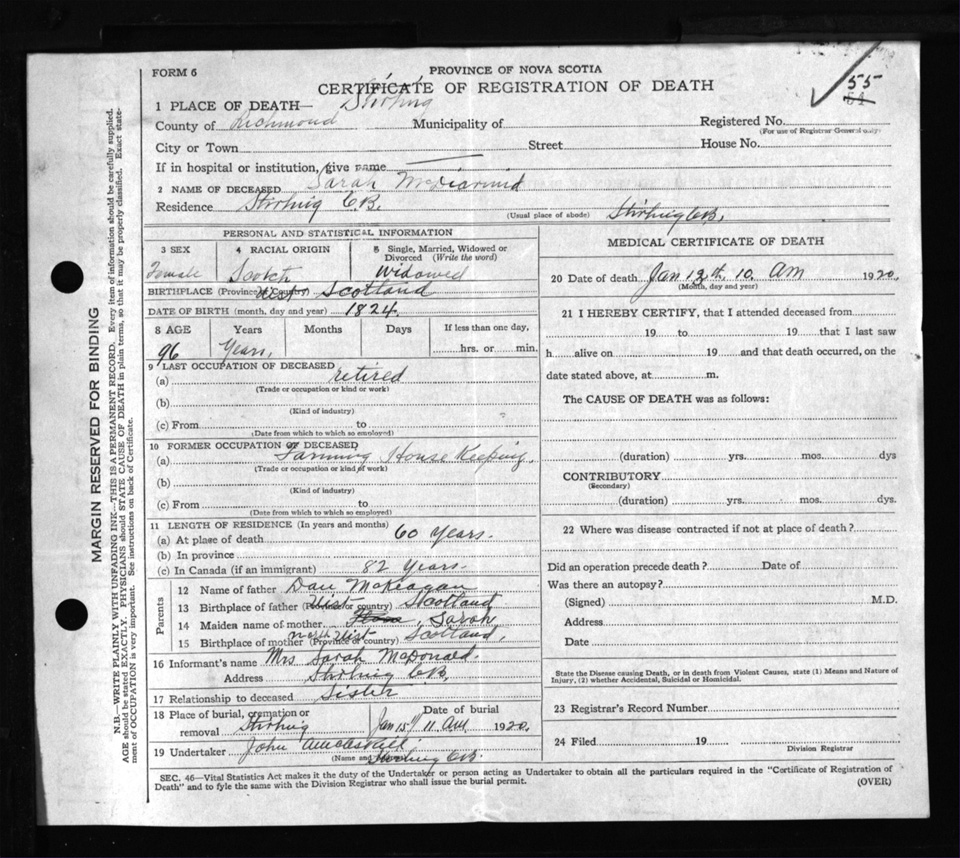 FORM 6
PROVINCE OF NOVA SCOTIA
CERTIFICATE OF REGISTRATION OF DEATH
55
51
1 PLACE OF DEATH— Stirling
County of Richmond Municipality of Registered No.
(For use of Registrar General only)
City or Town Street House No.
If in hospital or institution, give name
2 NAME OF DECEASED Sarah McDiarmid
Residence Stirling C.B. (Usual place of abode) Stirling C.B.
PERSONAL AND STATISTICAL INFORMATION
3 SEX 4 RACIAL ORIGIN 5 Single, Married, Widowed or Divorced (Write the word)
Female Scotch Widowed
BIRTHPLACE (Province or Country) Uist Scotland
DATE OF BIRTH (month, day and year) 1824
8 AGE Years Months Days If less than one day,
96 Years, hrs. or min.
9 LAST OCCUPATION OF DECEASED
(a) retired
(Trade or occupation or kind or work)
(b)
(Kind of industry)
(c) From to
(Date from which to which so employed)
10 FORMER OCCUPATION OF DECEASED
(a) Farming House Keeping,
(Trade or occupation or kind of work)
(b)
(Kind of industry)
(c) From to
(Date from which to which so employed)
11 LENGTH OF RESIDENCE (In years and months)
(a) At place of death 60 years.
(b) In province
(c) In Canada (if an immigrant) 82 Years.
Parents
12 Name of father Dan McKeagan
13 Birthplace of father (Province or country) Uist Scotland
14 Maiden name of mother Flora, Sarah
15 Birthplace of mother (Province or country) North Uist Scotland,
16 Informant's name Mrs Sarah McDonald.
Address Stirling C.B.
17 Relationship to deceased Sister
18 Place of burial, cremation or removal Stirling Date of burial Jan 15th 11 AM 1920.
19 Undertaker John
(Name and Stirling C.B.
MEDICAL CERTIFICATE OF DEATH
20 Date of death Jan 12th, 10. AM 1920.
(Month, day and year)
21 I HEREBY CERTIFY, that I attended deceased from
19 to 19 that I last saw
h alive on 19 and that death occurred, on the
date stated above, at m.
The CAUSE OF DEATH was as follows:
(duration) yrs. mos. dys
CONTRIBUTORY
(Secondary)
(duration) yrs. mos. dys.
22 Where was disease contracted if not at place of death?
Did an operation precede death? Date of
Was there an autopsy?
(Signed) M.D.
Address
Date
State the Disease causing Death, or in death from Violent Causes, state (1) Means and Nature of
Injury, (2) whether Accidental, Suicidal or Homicidal.
23 Registrar's Record Number
24 Filed 19
Division Registrar
SEC. 46—Vital Statistics Act makes it the duty of the Undertaker or person acting as Undertaker to obtain all the particulars required in the "Certificate of Registration of
Death" and to fyle the same with the Division Registrar who shall issue the burial permit. (OVER)
MARGIN RESERVED FOR BINDING
N.B.—WRITE PLAINLY WITH UNFADING INK—THIS IS A PERMANENT RECORD. Every item of information should be carefully supplied.
AGE should be stated EXACTLY. PHYSICIANS should STATE CAUSE OF DEATH in plain terms, so that it may be properly classified. Exact state-
ment of OCCUPATION is very important. See instructions on back of Certificate.